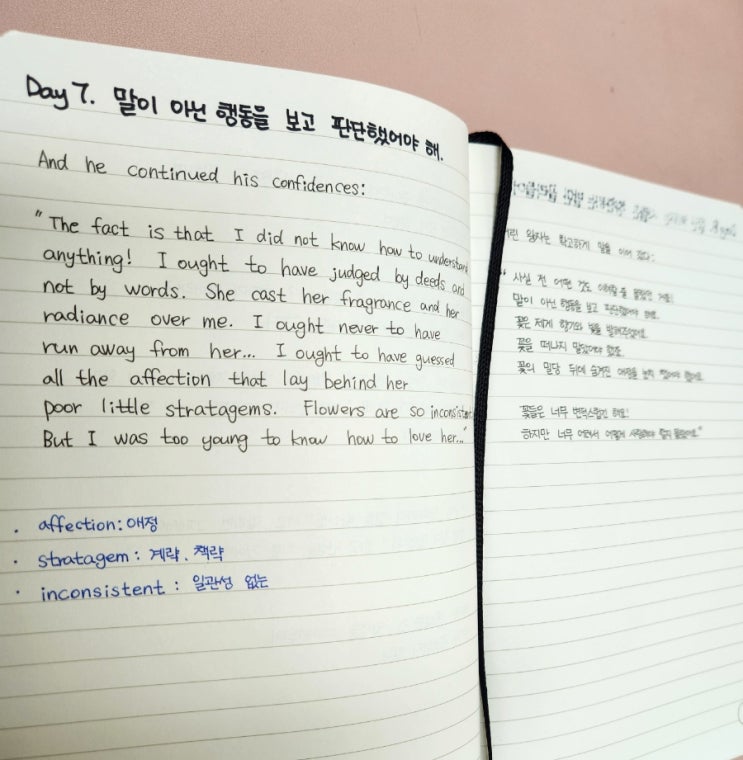 Day 7. 말이 아닌 행동을 보고 판단했어야 해.
And he continued his confidences:
"The fact is that I did not know how to understand
anything! I ought to have judged by deeds and
not by words. She cast her fragrance and her
radiance over me. I ought never to have
run away from her... I ought to have guessed
all the affection that lay behind her
poor little stratagems. Flowers are so inconsistent
But I was too young to know how to love her..."
· affection: 애정
· stratagem : 계략. 책략
· inconsistent : 일관성 없는
왕자는 확고하게 말을 이어 갔다:
" 사실 전 어떤 것도 몰랐던 거죠!
말이 아닌 행동을 보고 판단했어야 해요.
꽃은 제게 향기와 빛을 발해주었어요.
꽃을 떠나지 말았어야 했죠.
꽃의 뒤에 숨겨진 애정을 했어요.
꽃들은 너무 변덕스럽긴 해요!
하지만 너무 어려서 어떻게 사랑해야 할지 몰랐어요."